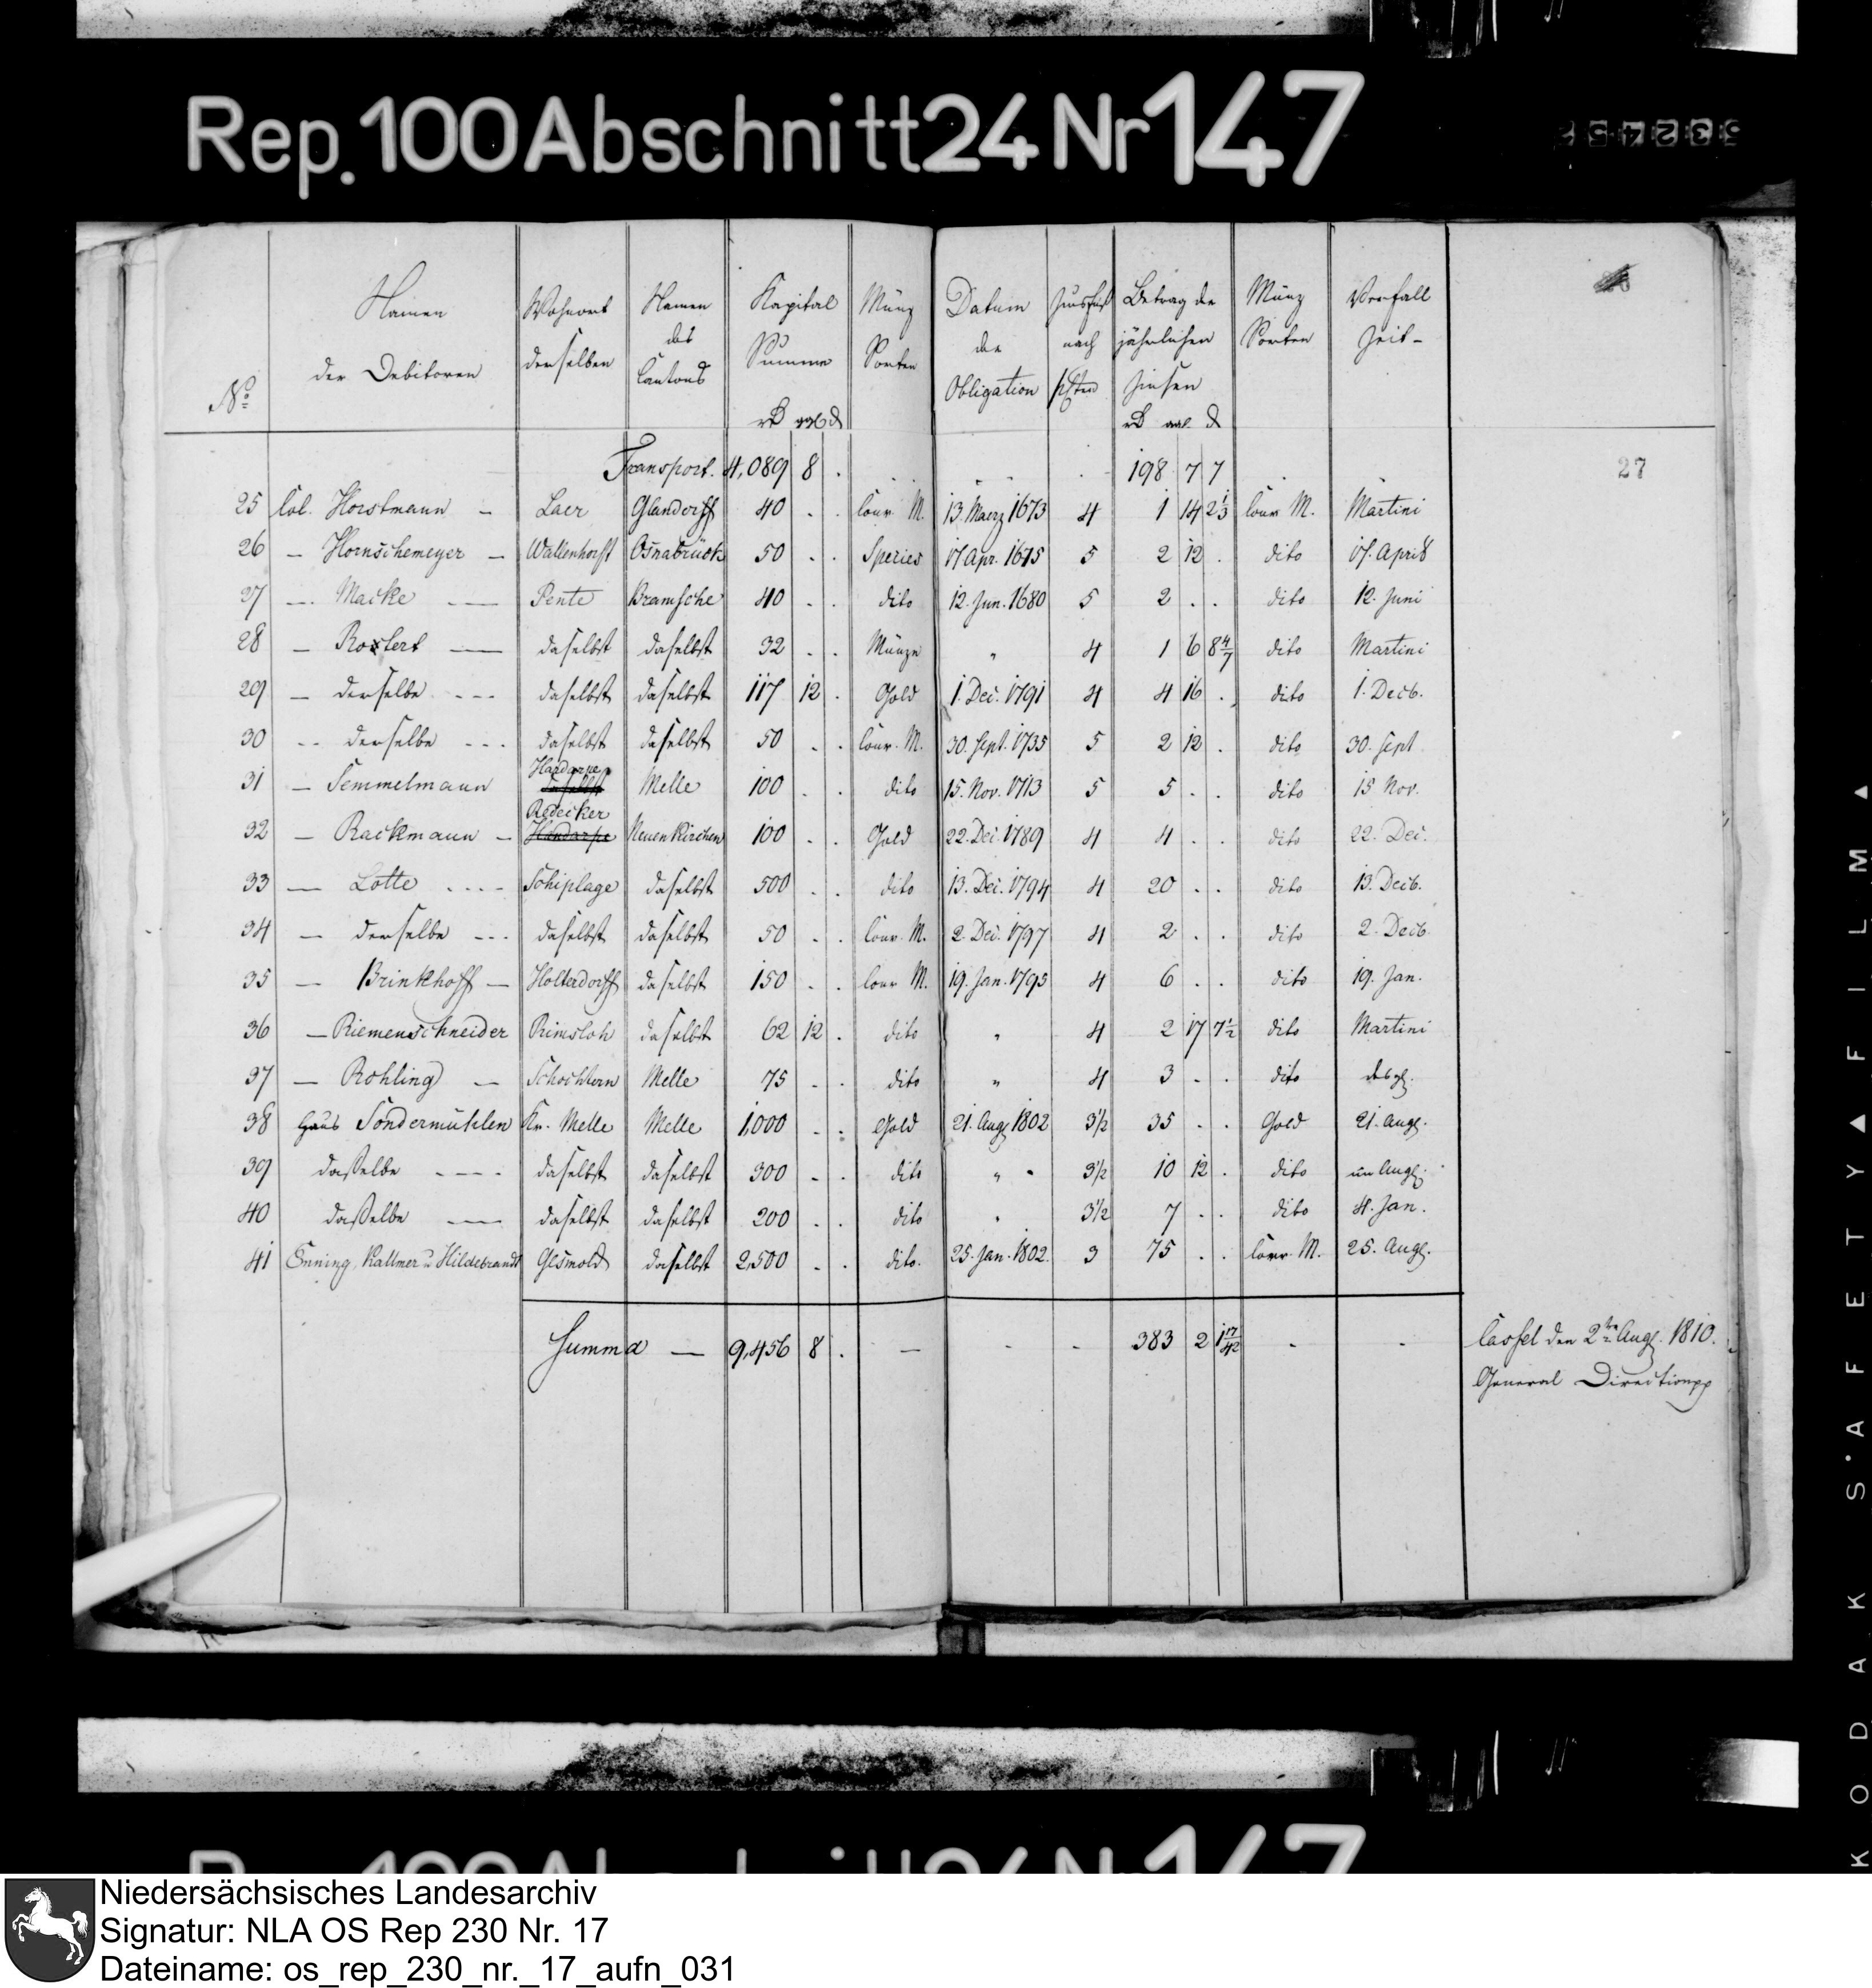 Rep. 100 Abschnitt 24 Nr 147
No Namen der Debitoren Wohnort derselben Namen des Cantons Kapital Summe Münz Sorten Datum der Obligation Zinsfuß nach pCten Betrag der jährlichen Zinsen Münz Sorten Verfall Zeit
Transport. 4,089 8 . 198 7 7 27
25 Col. Horstmann - Laer Glandorff 40 . . Conv. M. 13. Maerz 1673 4 1 14 2 1/3 Conv M. Martini
26 - Hornschemeyer - Wallenhorst Osnabrück 50 . . Species 17 Apr. 1675 5 2 12 . dito 17. April
27 - Macke - Pente Bramsche 40 . . dito 12. Jun. 1680 5 2 . . dito 12. Juni
28 - Rostert - daselbst daselbst 32 . . Münze " 4 1 6 8 4/7 dito Martini
29 - derselbe - daselbst daselbst 117 12 . Gold 1. Dec. 1791 4 4 16 . dito 1. Decb.
30 - derselbe - daselbst daselbst 50 . . Conv. M. 30. Sept. 1735 5 2 12 . dito 30. Sept
31 - Semmelmann Handarpe daselbst Melle 100 . . dito 15. Nov. 1713 5 5 . . dito 15 Nov.
32 - Rackmann - Redecker Handarpe Neuenkirchen 100 . . Gold 22. Dec. 1789 4 4 . . dito 22. Dec.
33 - Lotte - Schiplage daselbst 500 . . dito 13. Dec. 1794 4 20 . . dito 13. Decb.
34 - derselbe - daselbst daselbst 50 . . Conv. M. 2. Dec. 1797 4 2 . . dito 2. Decb.
35 - Brinkhoff - Holterdorff daselbst 150 . . Conv M. 19. Jan. 1795 4 6 . . dito 19. Jan.
36 - Riemenschneider Riemsloh daselbst 62 12 . dito " 4 2 17 7 1/2 dito Martini
37 - Rohling - Melle 75 . . dito " 4 3 . . dito desgl.
38 Haus Sondermühlen Kr. Melle Melle 1,000 . . Gold 21. Aug 1802 3 1/2 35 . . Gold 21. Augt.
39 dasselbe - daselbst daselbst 300 . . dito " 3 1/2 10 12 . dito im Augt.
40 dasselbe - daselbst daselbst 200 . . dito " 3 1/2 7 . . dito 4. Jan.
41 Enning, Kallmer u Hildebrandt Gesmold daselbst 2,500 . . dito. 25. Jan. 1802. 3 75 . . Conv. M. 25. Augt.
Summa - 9,456 8 . - - - 383 2 1 17/42 - -
Cassel den 2ten Augt. 1810.
General Direction pp
KODAK SAFETY FILM
Niedersächsisches Landesarchiv
Signatur: NLA OS Rep 230 Nr. 17
Dateiname: os_rep_230_nr._17_aufn_031